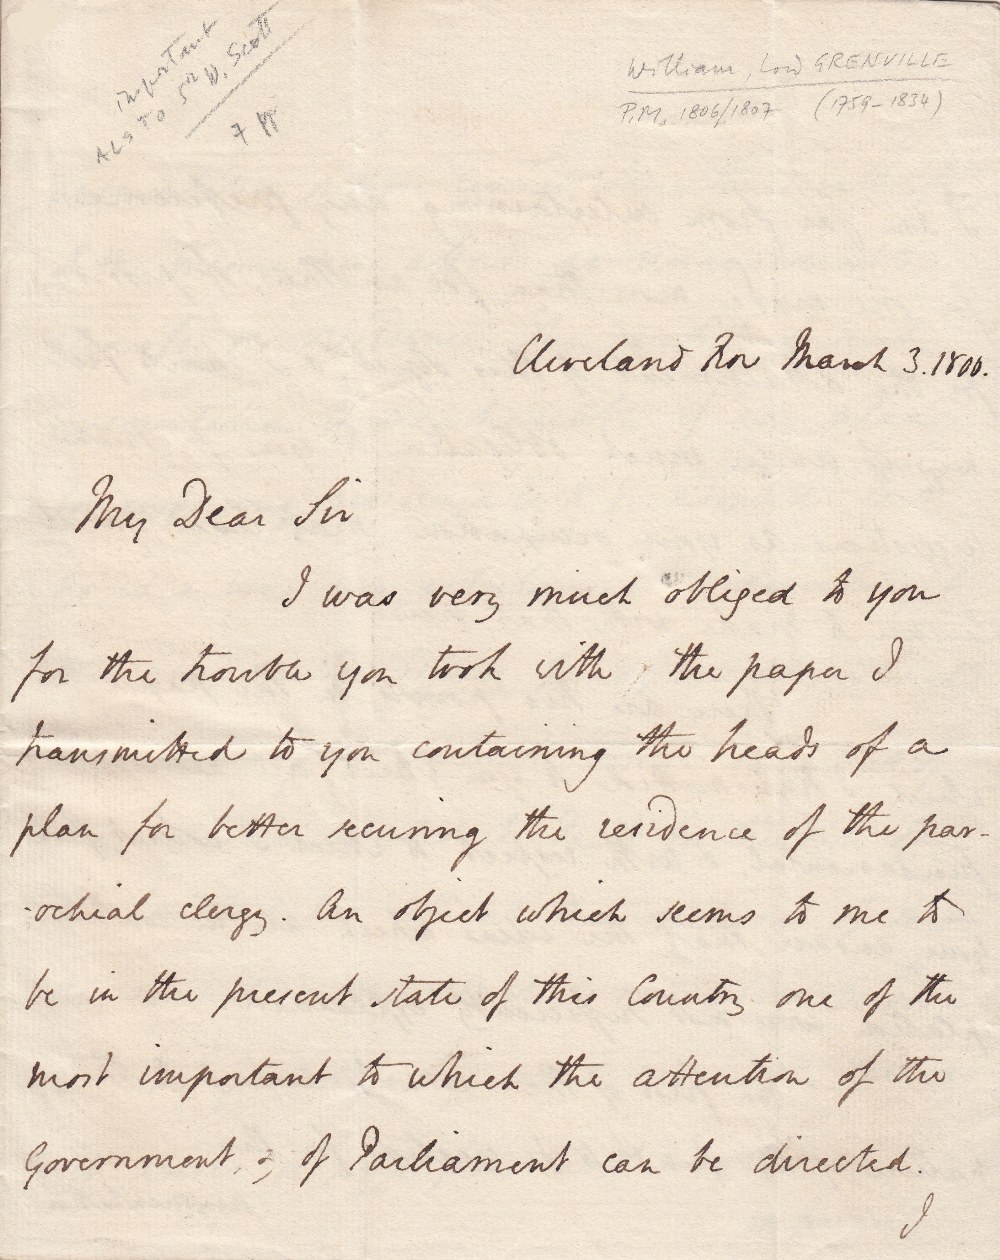 important
ALS TO Sir W. Scott
7 pp
William, Lord GRENVILLE
P.M. 1806/1807 (1759-1834)
Cleveland Row March 3. 1800.
My Dear Sir
I was very much obliged to you
for the trouble you took with the paper I
transmitted to you containing the heads of a
plan for better securing the residence of the par-
-ochial clergy. An object which seems to me to
be in the present state of this Country one of the
most important to which the attention of the
Government, & of Parliament can be directed.
I